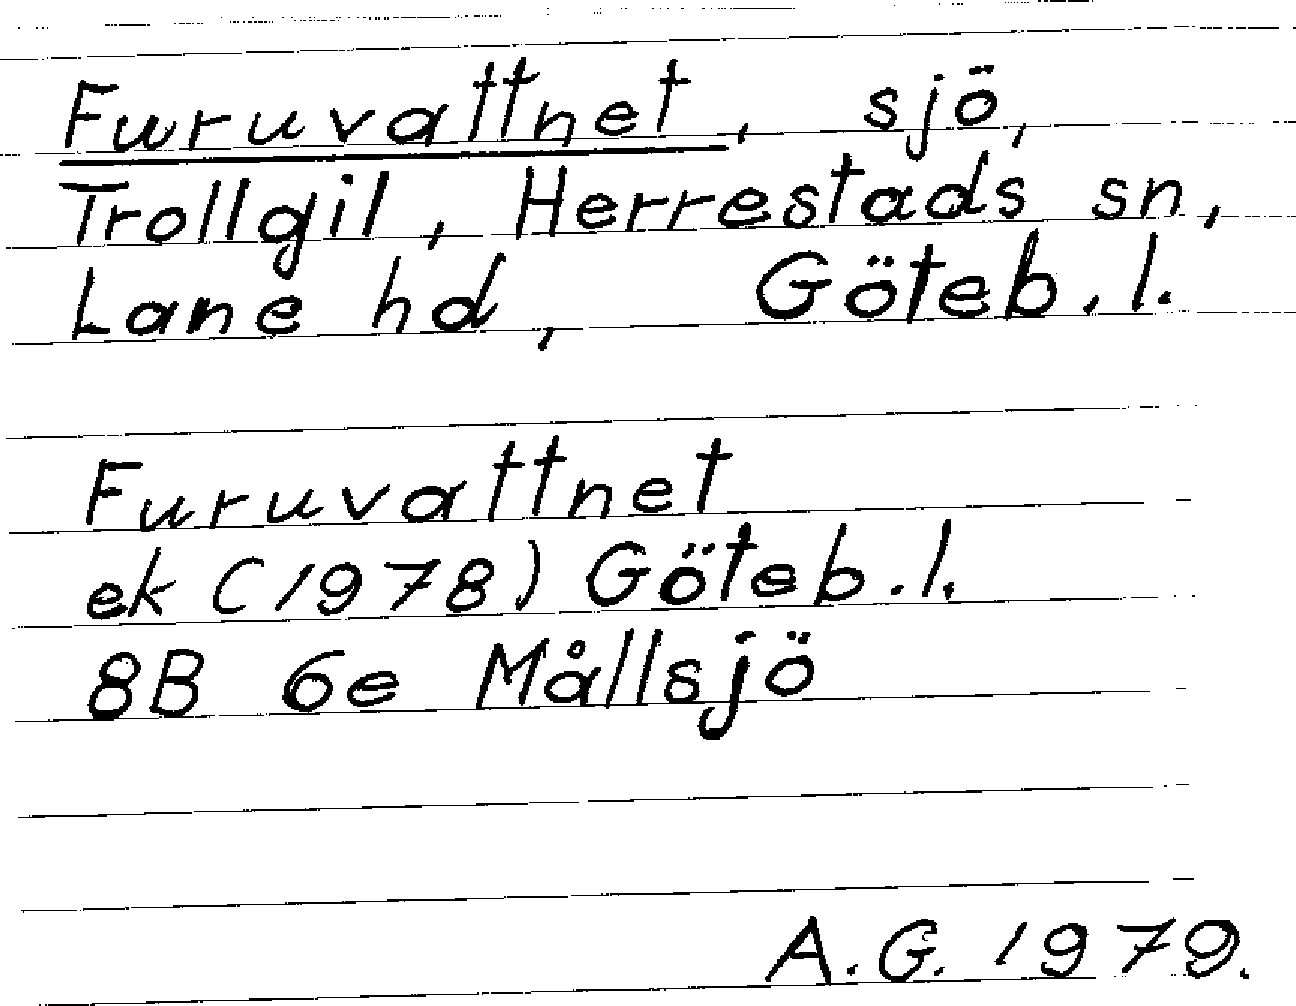 Furuvattnet, sjö,
Trollgil, Herrestads sn,
Lane hd, Göteb.l.
Furuvattnet
ek (1978) Göteb.l.
8B 6e Mållsjö
A.G. 1979.